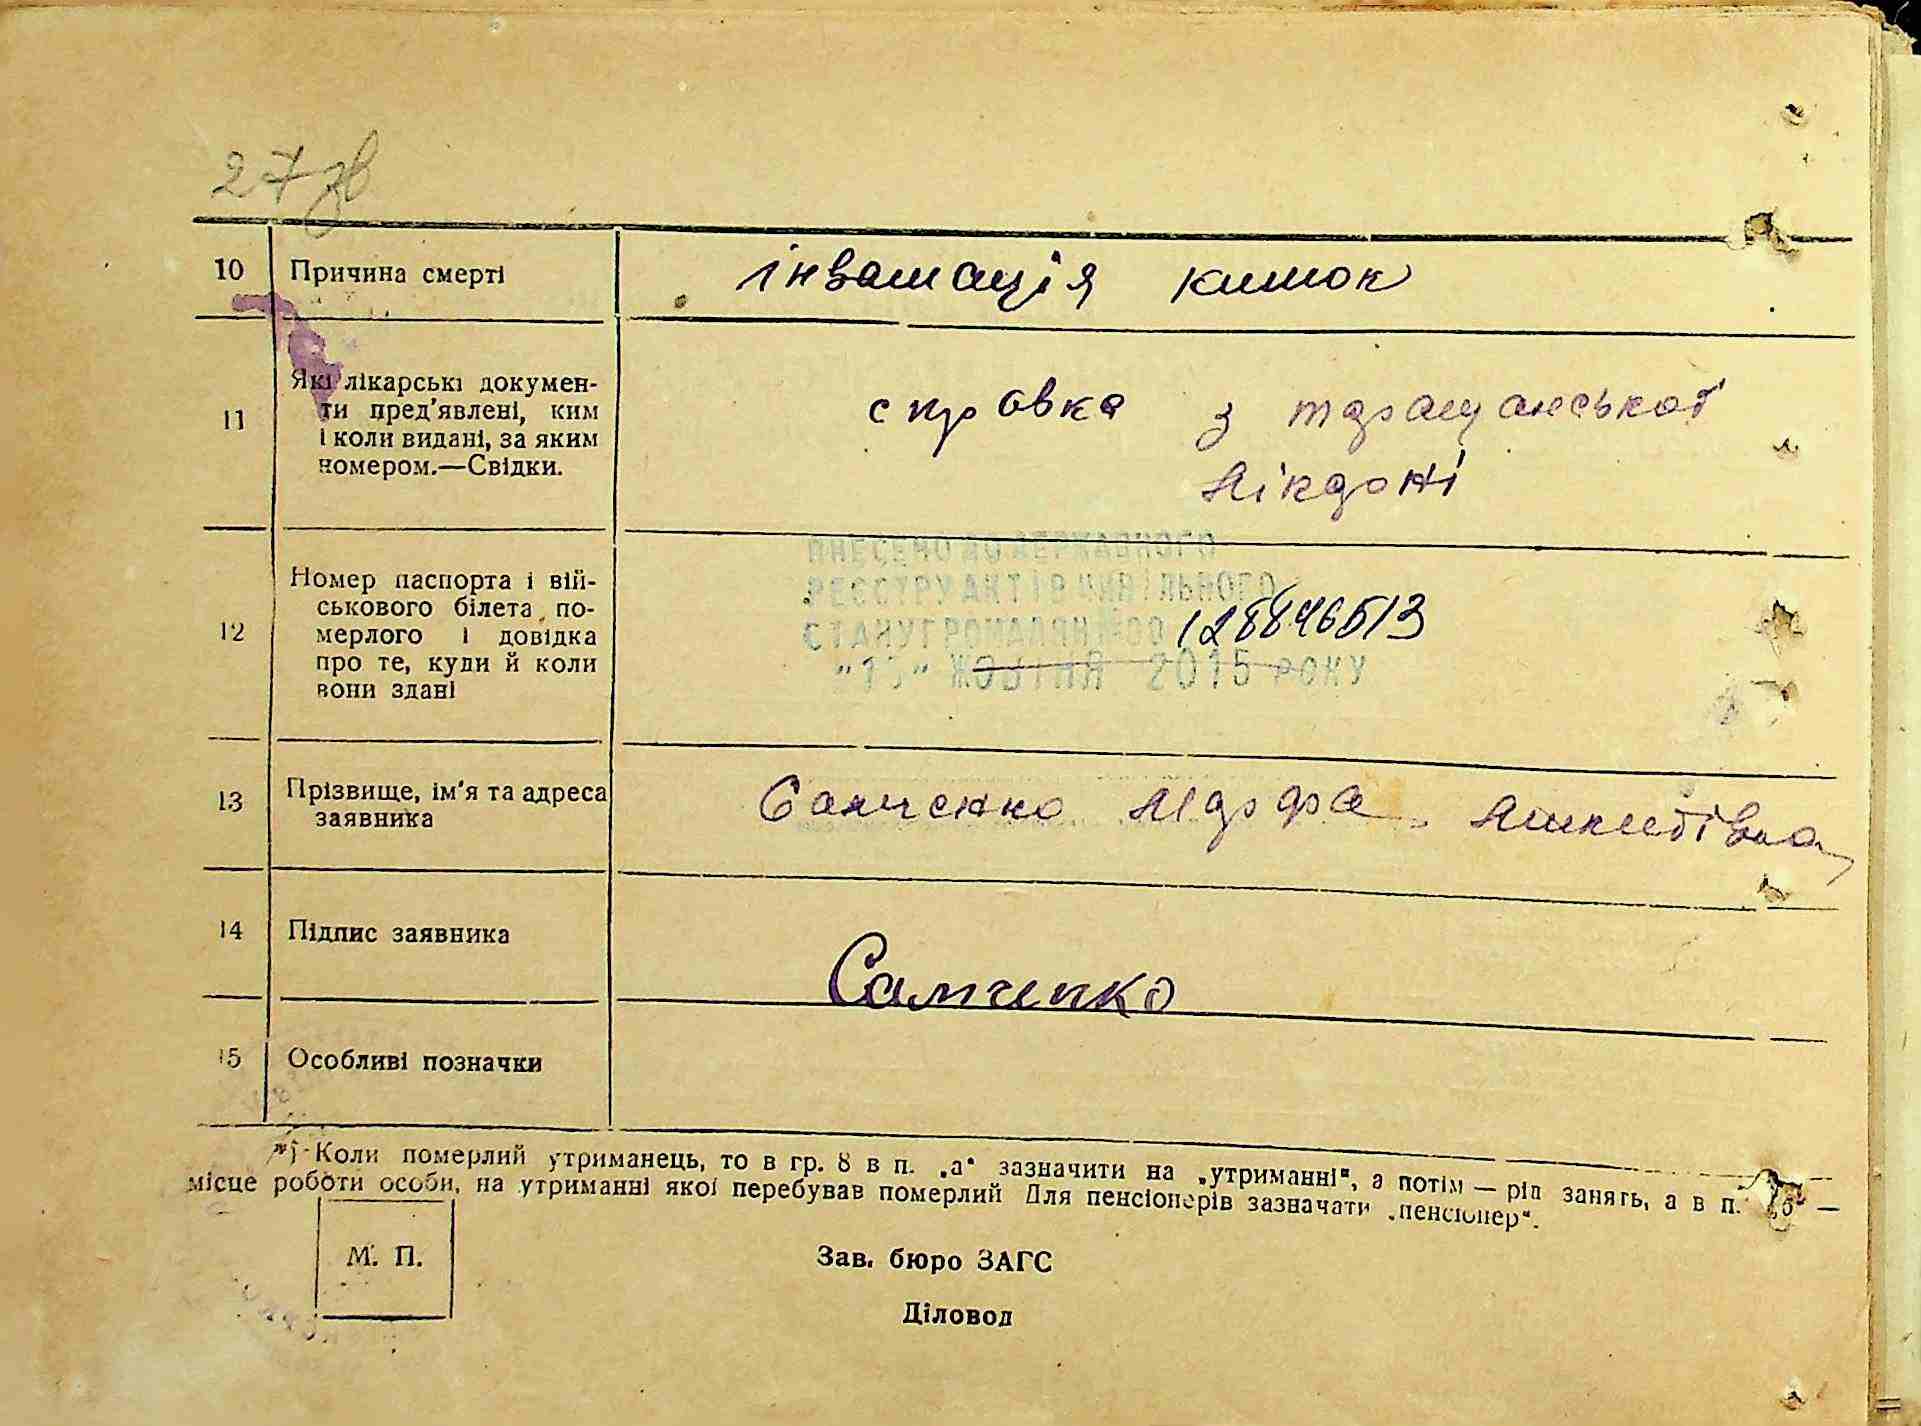 27 зв
10 Причина смерті інвагинація кишок
11 Які лікарські докумен-
ти пред'явлені, ким
і коли видані, за яким
номером.—Свідки.
справка з таращанської
лікарні
12 Номер паспорта і вій-
ськового білета по-
мерлого і довідка
про те, куди й коли
вони здані
ВНЕСЕНО ДО ДЕРЖАВНОГО
РЕЄСТРУ АКТІВ ЦИВІЛЬНОГО
СТАНУ ГРОМАДЯН
"15" ЖОВТНЯ 2015 РОКУ
13 Прізвище, ім'я та адреса
заявника
Самченко Марфа
14 Підпис заявника Самченко
15 Особливі позначки
*) Коли померлий утриманець, то в гр. 8 в п. „а“ зазначити на „утриманні“, а потім — рід занять, а в п. „б“ —
місце роботи особи, на утриманні якої перебував померлий Для пенсіонерів зазначати „пенсіонер“.
М. П.
Зав. бюро ЗАГС
Діловод